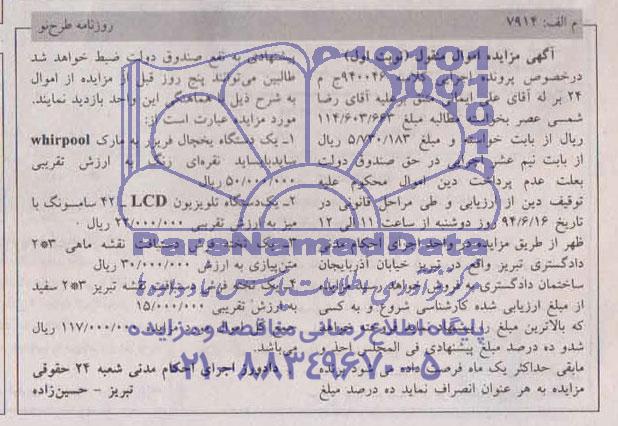 م الف: ۷۹۱۴
روزنامه طرح‌نو
آگهی مزایده اموال منقول (نوبت اول)
درخصوص پرونده اجرایی کلاسه ۹۴۰۰۴۶ ج م
۲۴ بر له آقای علی ایمانی علیه آقای رضا
شمسی عصر بخواسته مطالبه مبلغ ۱۱۴/۶۰۳/۶۶۳
ریال از بابت خواسته و مبلغ ۵/۷۳۰/۱۸۳ ریال
از بابت نیم عشر اجرایی در حق صندوق دولت
بعلت عدم پرداخت دین اموال محکوم علیه
توقیف دین از ارزیابی و طی مراحل قانونی در
تاریخ ۹۴/۶/۱۶ روز دوشنبه از ساعت ۱۱ الی ۱۲
ظهر از طریق مزایده در واحد اجرای احکام مدنی
دادگستری تبریز واقع در تبریز خیابان آذربایجان
ساختمان دادگستری به فروش خواهد رسید مزایده
از مبلغ ارزیابی شده کارشناسی شروع و به کسی
که بالاترین مبلغ را پیشنهاد نماید فروخته خواهد
شد و ده درصد مبلغ پیشنهادی فی المجلس اخذ و
مابقی حداکثر یک ماه فرصت داده می شود برنده
مزایده به هر عنوان انصراف نماید ده درصد مبلغ
پیشنهادی به نفع صندوق دولت ضبط خواهد شد
طالبین می‌توانند پنج روز قبل از مزایده از اموال
به شرح ذیل با هماهنگی این واحد بازدید نمایند.
مورد مزایده عبارت است از:
۱ـ یک دستگاه یخچال فریزر به مارک whirpool
سایدبایساید نقره‌ای رنگ به ارزش تقریبی
۵۰/۰۰۰/۰۰۰ ریال
۲ـ یک دستگاه تلویزیون LCD ـ ۴۲ سامسونگ با
میز به ارزش تقریبی ۲۲/۰۰۰/۰۰۰ ریال
۳ـ یک تخته فرش دستبافت نقشه ماهی ۳*۲
متن‌پیازی به ارزش ۳۰/۰۰۰/۰۰۰ ریال
۴ـ یک تخته فرش دستبافت نقشه تبریز ۳*۲ سفید
به ارزش تقریبی ۱۵/۰۰۰/۰۰۰
مبلغ کل اموال مورد مزایده ۱۱۷/۰۰۰/۰۰۰ ریال
می‌باشد.
دادورز اجرای احکام مدنی شعبه ۲۴ حقوقی
تبریز - حسین‌زاده
ParsNamadData
پایگاه اطلاع رسانی مناقصه و مزایده
۰۲۱-۸۸۳۴۹۶۷۰-۵